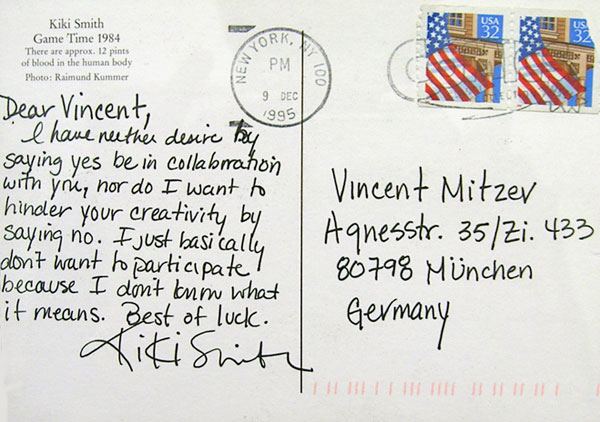 Kiki Smith
Game Time 1984
There are approx. 12 pints
of blood in the human body
Photo: Raimund Kummer
NEW YORK, NY 100
PM
9 DEC
1995
USA
32
USA
32
Dear Vincent,
I have neither desire by
saying yes be in collaboration
with you, nor do I want to
hinder your creativity by
saying no. I just basically
don't want to participate
because I don't know what
it means. Best of luck.
Kiki Smith
Vincent Mitzev
Agnesstr. 35/Zi. 433
80798 München
Germany